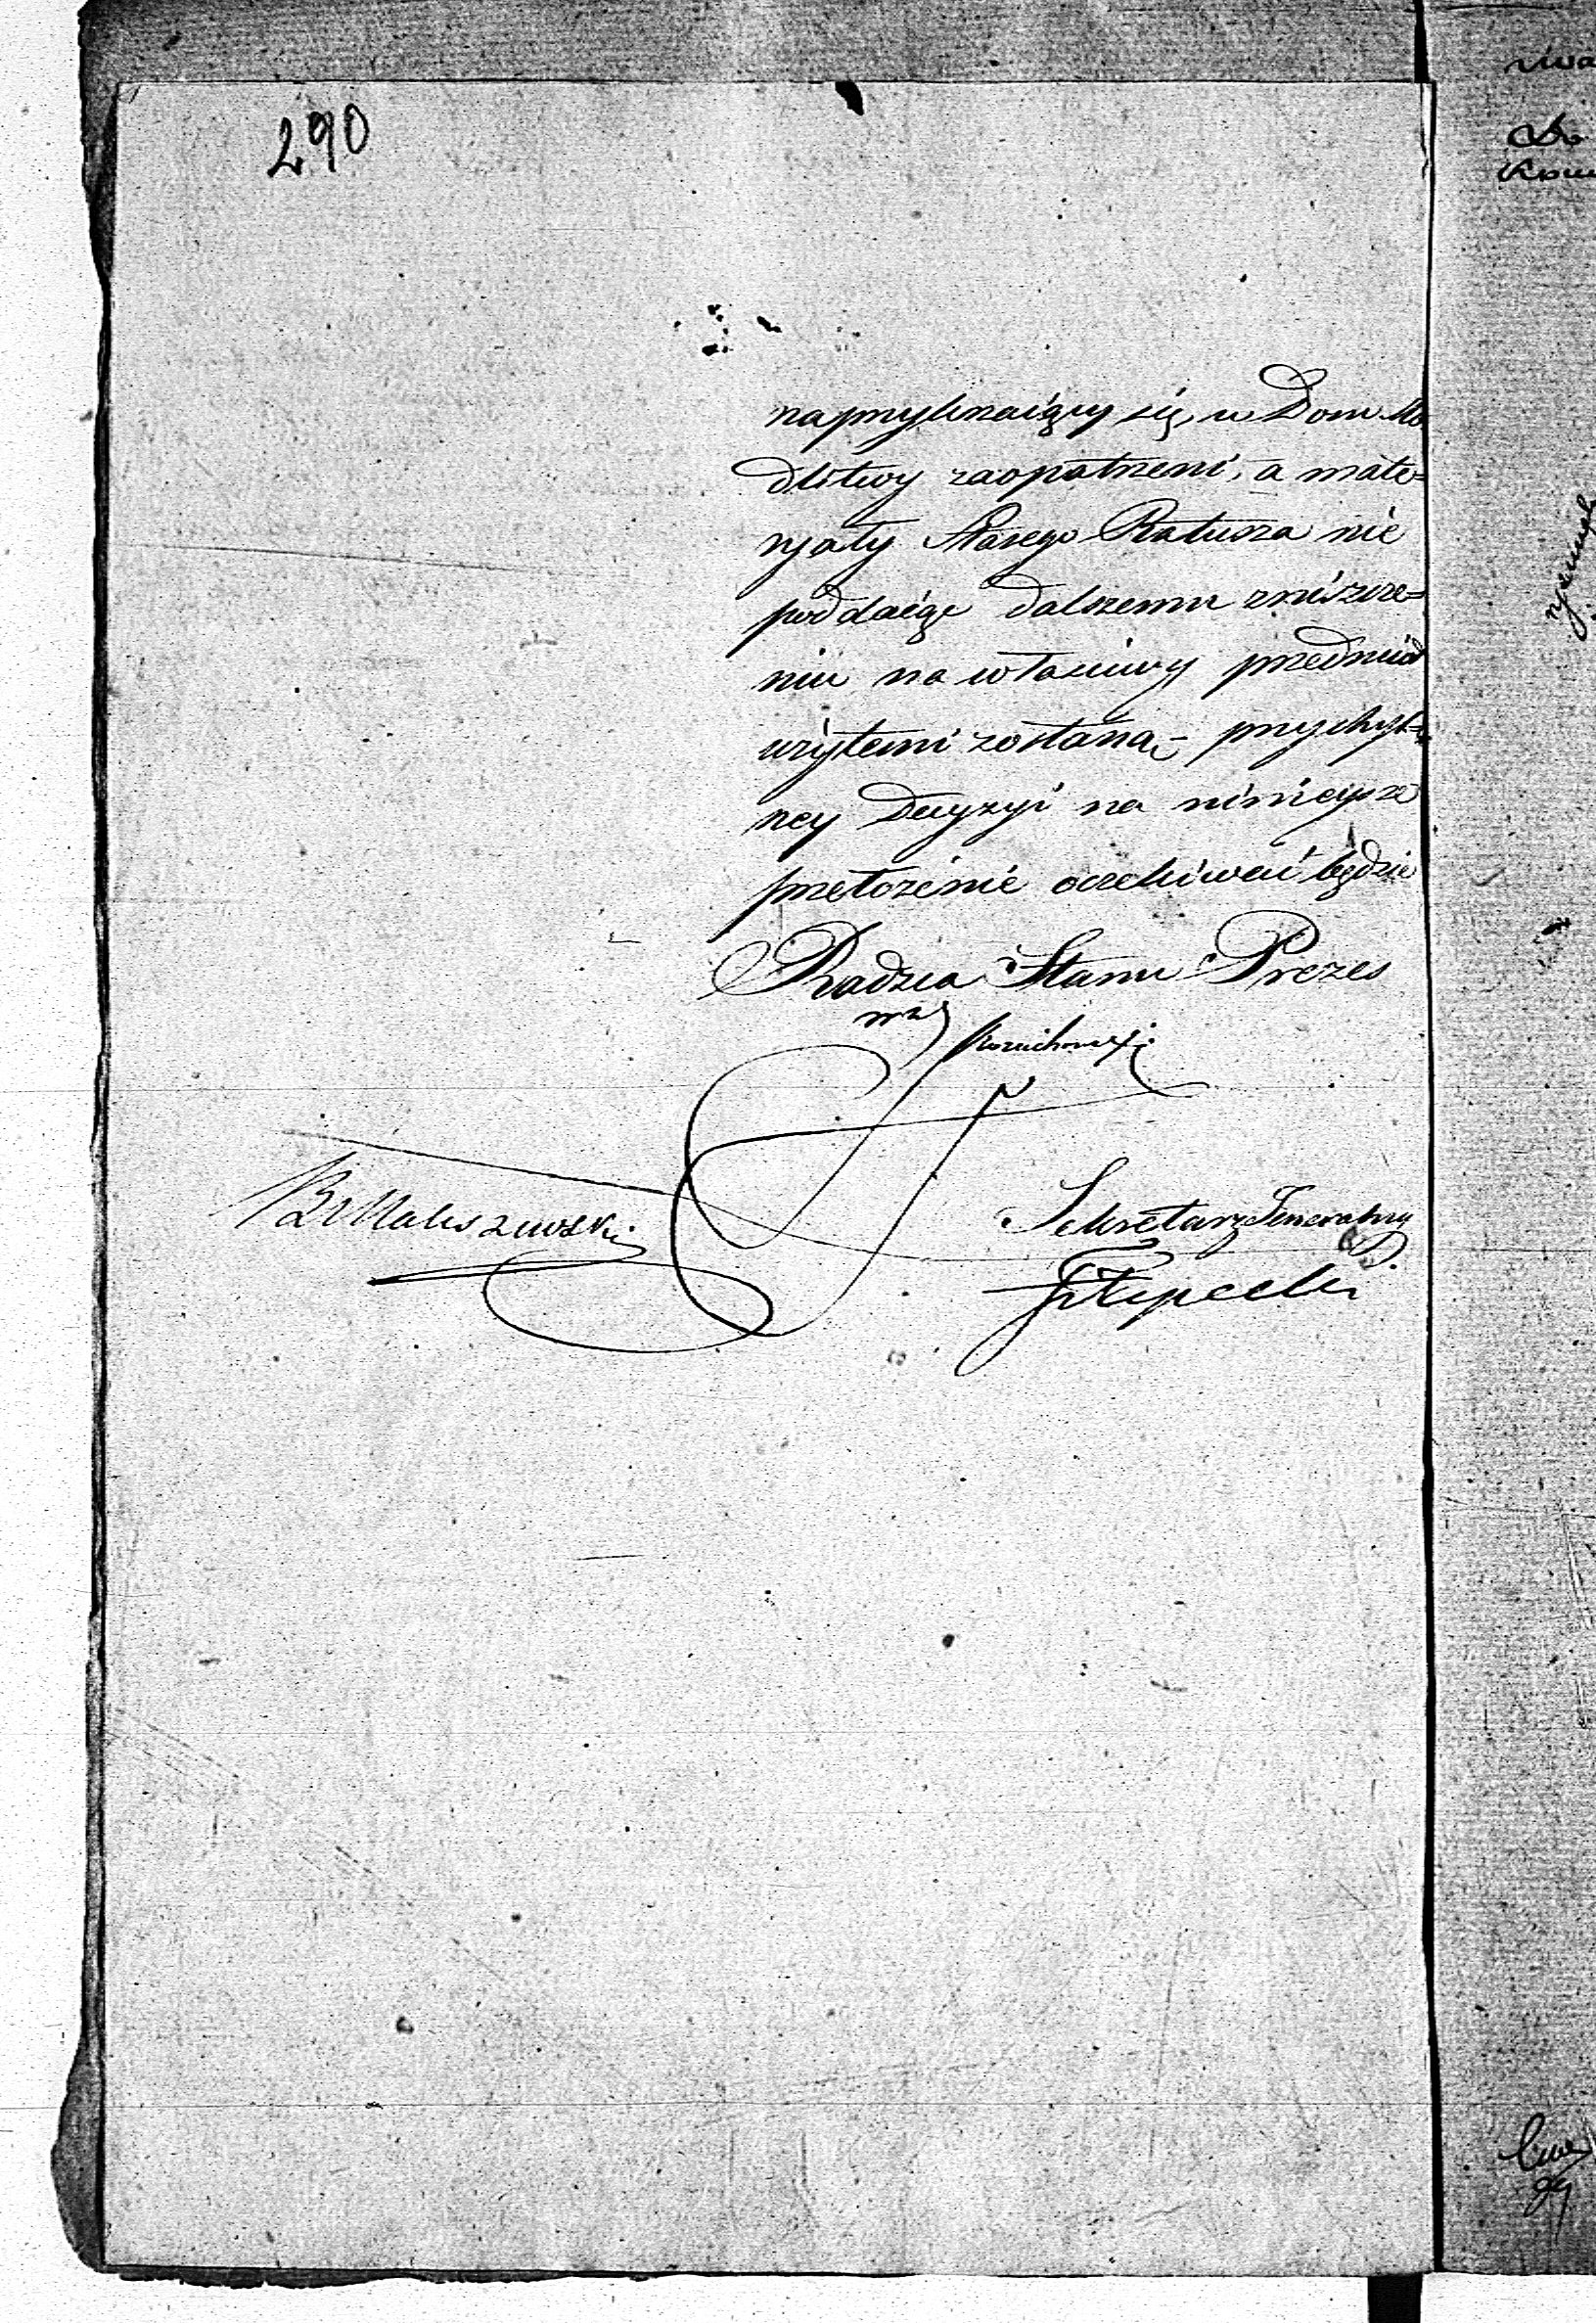 290
naprzykrzaiący się, w Dom Mo
dlitwy zaopatrzeni, a mate=
ryały Starego Ratusza nie
poddaiąc dalszemu zniszcze=
niu na właściwy przedmiot
użytemi zostaną - przychyl=
ney Decyzyi na ninieysze
przełożenie oczekiwać będzie
Radzca Stanu Prezes
wz
BMaliszewski
Sekretarz Jeneralny
Filipecki